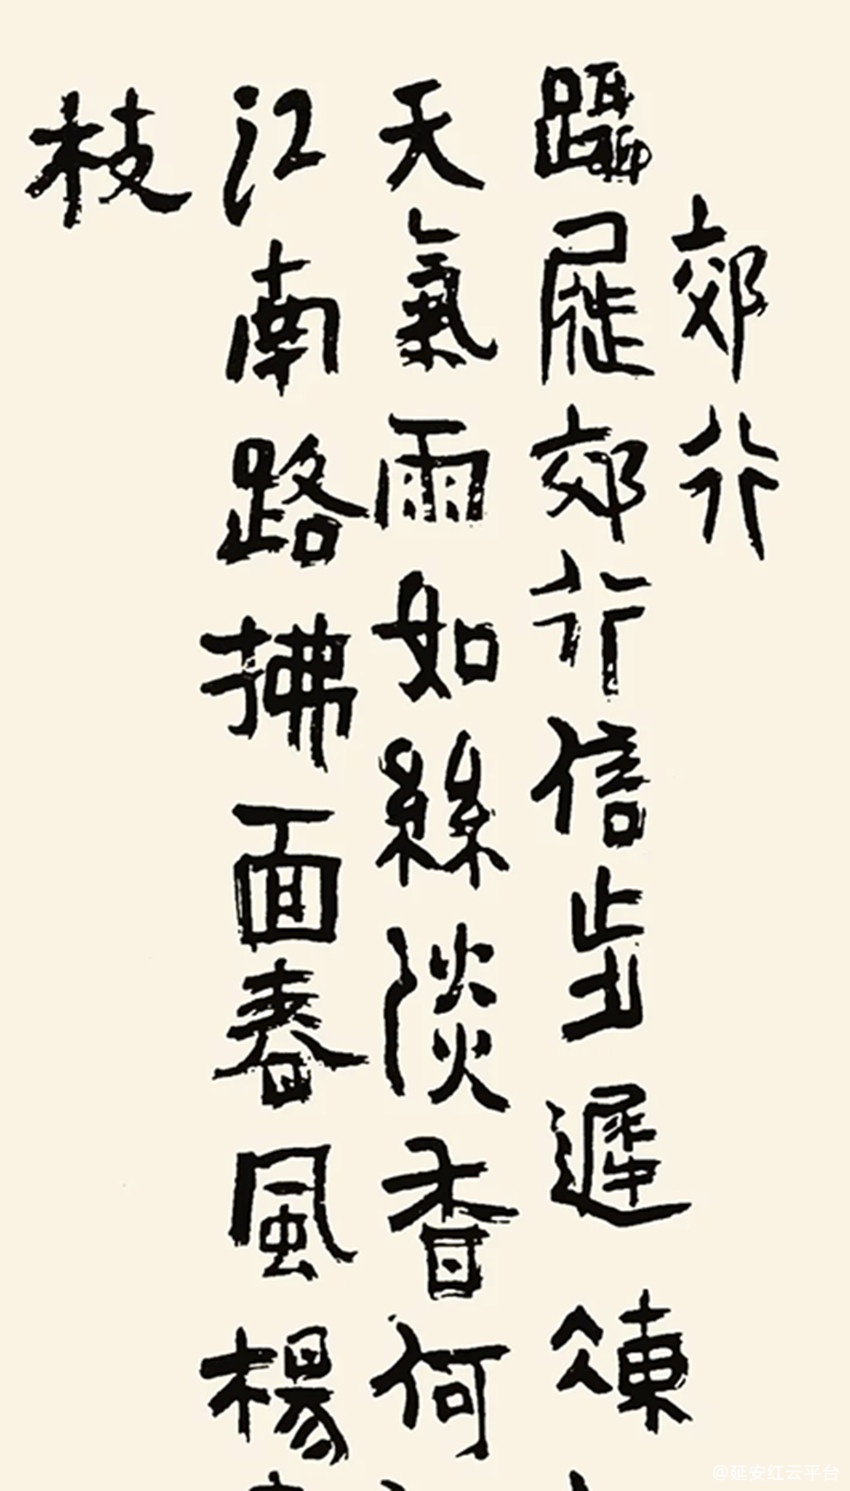 郊行
躡屣郊行信步遲凍
天氣雨如絲淡香何
江南路拂面春風楊
枝
@延安红云平台